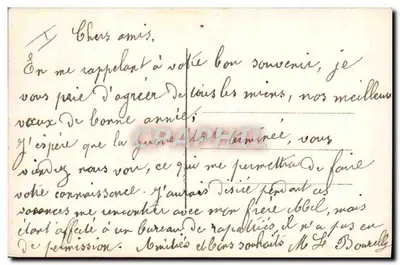 I
Chers amis.
En me rappelant à votre bon souvenir, je
vous prie d'agréer de tous les miens, nos meilleurs
vœux de bonne année;
J'espère que la guerre terminée, vous
viendrez nous voir, ce qui me permettra de faire
votre connaissance. J'aurais désiré pendant ces
vacances me rencontrer avec mon frère Abel, mais
étant affecté à un bureau de rapatriés, il n'a pas eu
de permission. Amitiés et bons souhaits M L Bourelly